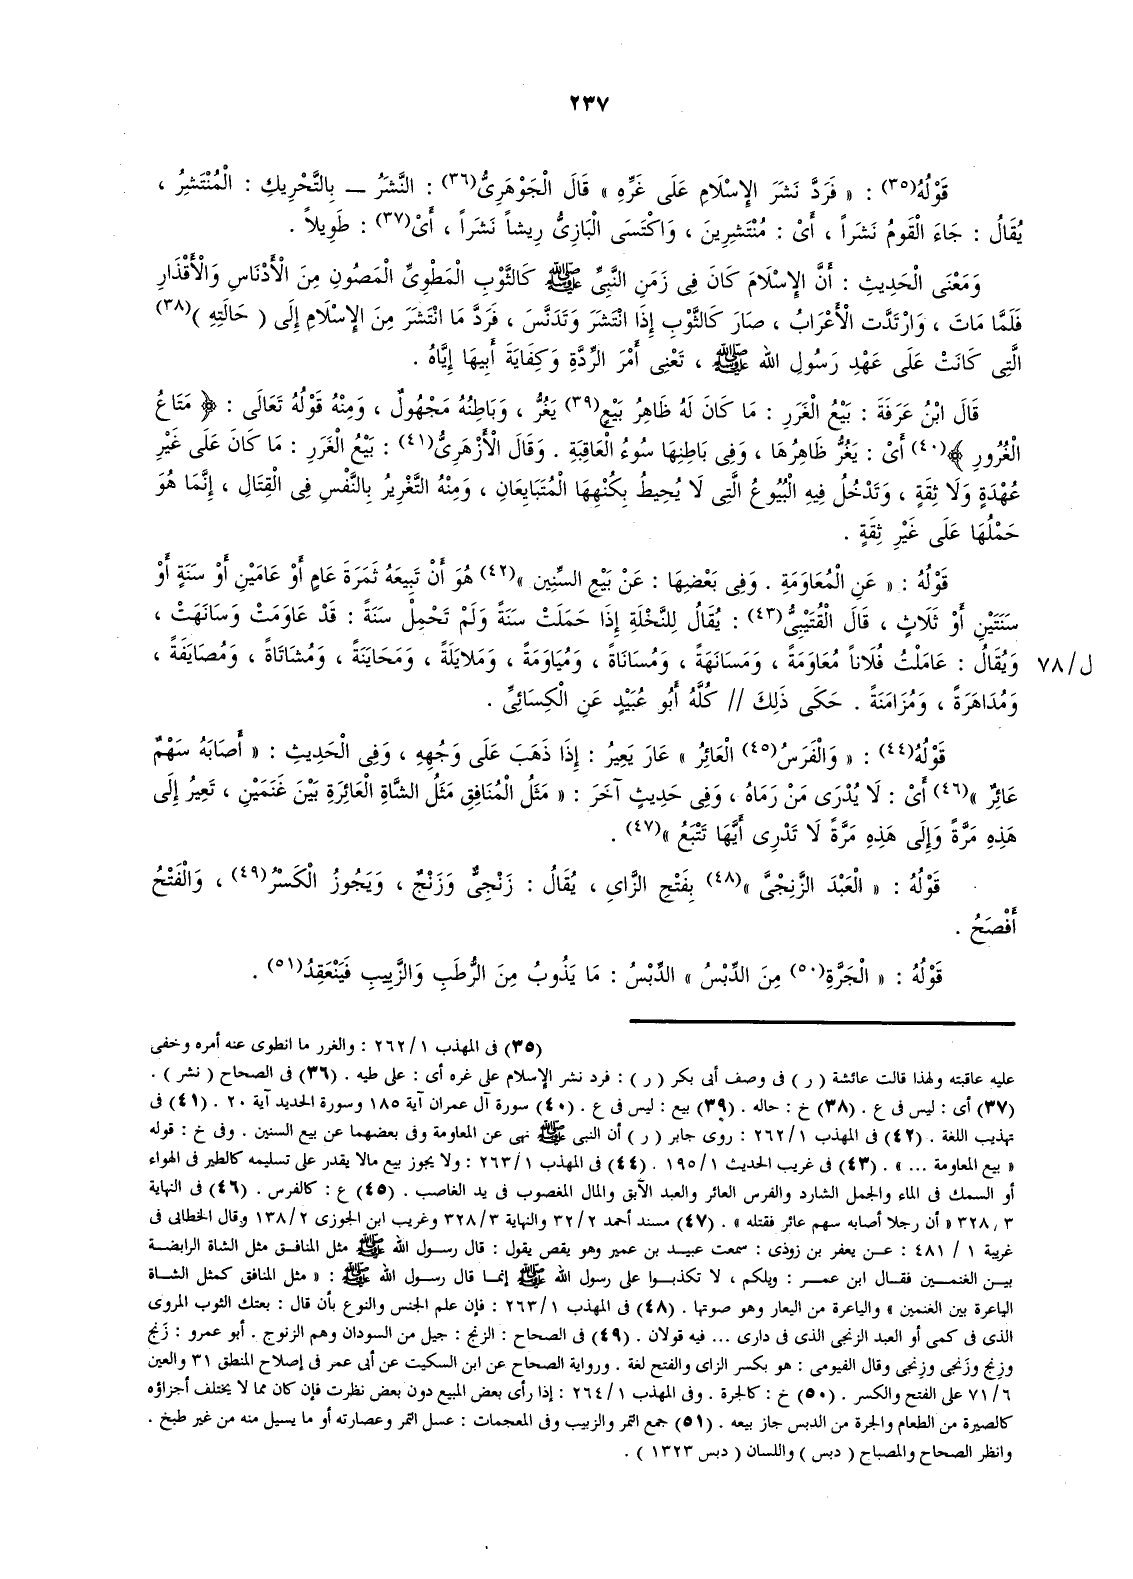 ٢٣٧
قَوْلُهُ(٣٥) : « فَرَدَّ نَشَرَ الإِسْلَامِ عَلَى غَرِّهِ » قَالَ الْجَوْهَرِىُّ(٣٦) : النَّشَرُ ــ بِالتَّحْرِيكِ : الْمُنْتَشِرُ ،
يُقَالُ : جَاءَ الْقَومُ نَشَراً ، أَىْ : مُنْتَشِرِينَ ، وَاكْتَسَى الْبَازِىُّ رِيشاً نَشَراً ، أَىْ(٣٧) : طَوِيلاً .
وَمَعْنَى الْحَدِيثِ : أَنَّ الإِسْلَامَ كَانَ فِى زَمَنِ النَّبِىِّ ﷺ كَالثَّوْبِ الْمَطْوِىِّ الْمَصُونِ مِنَ الْأَدْنَاسِ وَالْأَقْذَارِ
فَلَمَّا مَاتَ ، وَارْتَدَّت الْأَعْرَابُ ، صَارَ كَالثَّوْبِ إِذَا انْتَشَرَ وَتَدَنَّسَ ، فَرَدَّ مَا انْتَشَرَ مِنَ الإِسْلَامِ إِلَى ( حَالَتِهِ )(٣٨)
الَّتِى كَانَتْ عَلَى عَهْدِ رَسُولِ الله ﷺ ، تَعْنِى أَمْرَ الرِّدَّةِ وَكِفَايَةَ أَبِيهَا إِيَّاهُ .
قَالَ ابْنُ عَرَفَةَ : بَيْعُ الْغَرَرِ : مَا كَانَ لَهُ ظَاهِرُ بَيْعٍ(٣٩) يَغُرُّ ، وَبَاطِنُهُ مَجْهُولٌ ، وَمِنْهُ قَوْلُهُ تَعَالَى : ﴿ مَتَاعُ
الْغُرُورِ ﴾(٤٠) أَىْ : يَغُرُّ ظَاهِرُهَا ، وَفِى بَاطِنِهَا سُوءُ الْعَاقِبَةِ . وَقَالَ الْأَزْهَرِىُّ(٤١) : بَيْعُ الْغَرَرِ : مَا كَانَ عَلَى غَيْرِ
عُهْدَةٍ وَلَا ثِقَةٍ ، وَتَدْخُلُ فِيهِ الْبُيُوعُ الَّتِى لَا يُحِيطُ بِكُنْهِهَا الْمُتَبَايِعَانِ ، وَمِنْهُ التَّغْرِيرُ بِالنَّفْسِ فِى الْقِتَالِ ، إِنَّمَا هُوَ
حَمْلُهَا عَلَى غَيْرِ ثِقَةٍ .
قَوْلُهُ : « عَنِ الْمُعَاوَمَةِ . وَفِى بَعْضِهَا : عَنْ بَيْعِ السِّنِين »(٤٢) هُوَ أَنْ تَبِيعَهُ ثَمَرَةَ عَامٍ أَوْ عَامَيْنِ أَوْ سَنَةٍ أَوْ
سَنَتَيْنِ أَوْ ثَلَاثٍ ، قَالَ الْقُتَيْبِىُّ(٤٣) : يُقَالُ لِلنَّخْلَةِ إِذَا حَمَلَتْ سَنَةً وَلَمْ تَحْمِلْ سَنَةً : قَدْ عَاوَمَتْ وَسَانَهَتْ ،
وَيُقَالُ : عَامَلْتُ فُلَاناً مُعَاوَمَةً ، وَمَسَانَهَةً ، وَمُسَانَاةً ، وَمُيَاوَمَةً ، وَمَلايَلَةً ، وَمَحَايَنَةً ، وَمُشَاتَاةً ، وَمُصَايَفَةً ، ل/٧٨
وَمُدَاهَرَةً ، وَمُزَامَنَةً . حَكَى ذَلِكَ // كُلَّهُ أَبُو عُبَيْدٍ عَنِ الْكِسَائِىِّ .
قَوْلُهُ(٤٤) : « وَالْفَرَسُ(٤٥) الْعَائِرُ » عَارَ يَعِيرُ : إِذَا ذَهَبَ عَلَى وَجْهِهِ ، وَفِى الْحَدِيثِ : « أَصَابَهُ سَهْمٌ
عَائِرٌ »(٤٦) أَىْ : لَا يُدْرَى مَنْ رَمَاهُ ، وَفِى حَدِيثٍ آخَرَ : « مَثَلُ الْمُنَافِقِ مَثَلُ الشَّاةِ الْعَائِرَةِ بَيْنَ غَنَمَيْنِ ، تَعِيرُ إِلَى
هَذِهِ مَرَّةً وَإِلَى هَذِهِ مَرَّةً لَا تَدْرِى أَيَّهَا تَتْبَعُ »(٤٧) .
قَوْلُهُ : « الْعَبْدَ الزَّنِجْىَّ »(٤٨) بِفَتْحِ الزَّايِ ، يُقَالُ : زَنْجِىٌّ وَزَنْجٌ ، وَيَجُوزُ الْكَسْرُ(٤٩) ، وَالْفَتْحُ
أَفْصَحُ .
قَوْلُهُ : « الْجَرَّةِ(٥٠) مِنَ الدِّبْسُ » الدِّبْسُ : مَا يَذُوبُ مِنَ الرُّطَبِ وَالزَّبِيبِ فَيَنْعَقِدُ(٥١) .
(٣٥) فى المهذب ١/ ٢٦٢ : والغرر ما انطوى عنه أمره وخفى
عليه عاقبته ولهذا قالت عائشة ( ر ) فى وصف أبى بكر ( ر ) : فرد نشر الإسلام على غره أى : على طيه . (٣٦) فى الصحاح ( نشر ) .
(٣٧) أى : ليس فى ع . (٣٨) خ : حاله . (٣٩) بيع : ليس فى ع . (٤٠) سورة آل عمران آية ١٨٥ وسورة الحديد آية ٢٠ . (٤١) فى
تهذيب اللغة . (٤٢) فى المهذب ١/ ٢٦٢ : روى جابر ( ر ) أن النبى ﷺ نهى عن المعاومة وفى بعضهما عن بيع السنين . وفى خ : قوله
« بيع المعاومة ... » . (٤٣) فى غريب الحديث ١/ ١٩٥ . (٤٤) فى المهذب ١/ ٢٦٣ : ولا يجوز بيع مالا يقدر على تسليمه كالطير فى الهواء
أو السمك فى الماء والجمل الشارد والفرس العائر والعبد الآبق والمال المغصوب فى يد الغاصب . (٤٥) ع : كالفرس . (٤٦) فى النهاية
٣٢٨,٣ « أن رجلا أصابه سهم عائر فقتله » . (٤٧) مسند أحمد ٢/ ٣٢ والنهاية ٣/ ٣٢٨ وغريب ابن الجوزى ٢/ ١٣٨ وقال الخطابى فى
غريبة ١ / ٤٨١ : عن يعفر بن زوذى : سمعت عبيد بن عمير وهو يقص يقول : قال رسول الله ﷺ مثل المنافق مثل الشاة الرابضة
بين الغنمين فقال ابن عمر : ويلكم ، لا تكذبوا على رسول الله ﷺ إنما قال رسول الله ﷺ : « مثل المنافق كمثل الشاة
الياعرة بين الغنمين » والياعرة من اليعار وهو صوتها . (٤٨) فى المهذب ١/ ٢٦٣ : فإن علم الجنس والنوع بأن قال : بعتك الثوب المروى
الذى فى كمى أو العبد الزنجى الذى فى دارى ... فيه قولان . (٤٩) فى الصحاح : الزنج : جيل من السودان وهم الزنوج . أبو عمرو : زَنج
وزِنج وزَنجى وزِنجى وقال الفيومى : هو بكسر الزاى والفتح لغة . ورواية الصحاح عن ابن السكيت عن أبى عمر فى إصلاح المنطق ٣١ والعين
٦/ ٧١ على الفتح والكسر . (٥٠) خ : كالجرة . وفى المهذب ١/ ٢٦٤ : إذا رأى بعض المبيع دون بعض نظرت فإن كان مما لا يختلف أجزاؤه
كالصبرة من الطعام والجرة من الدبس جاز بيعه . (٥١) جمع التمر والزبيب وفى المعجمات : عسل التمر وعصارته أو ما يسيل منه من غير طبخ .
وانظر الصحاح والمصباح ( دبس ) واللسان ( دبس ١٣٢٣ ) .